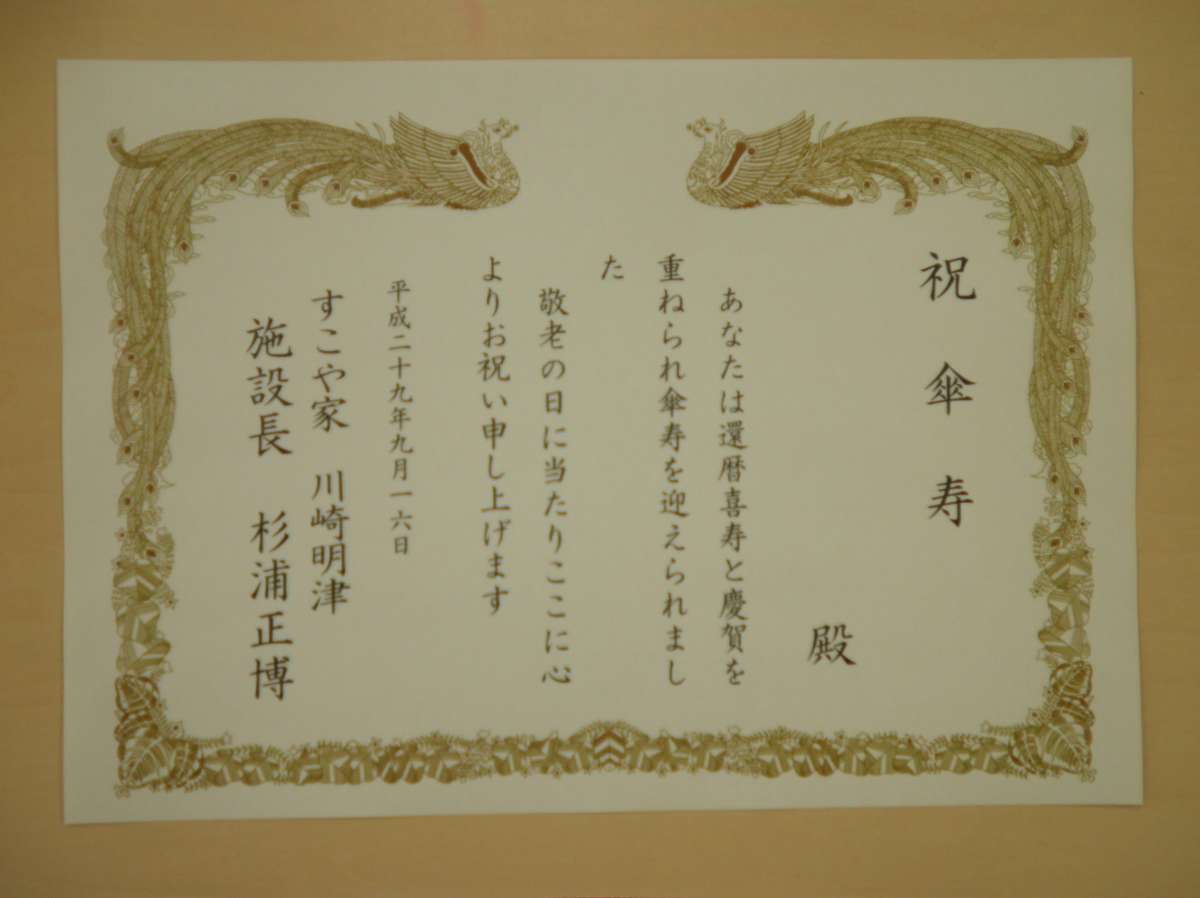 祝傘寿
殿
あなたは還暦喜寿と慶賀を
重ねられ傘寿を迎えられまし
た
敬老の日に当たりここに心
よりお祝い申し上げます
平成二十九年九月一六日
すこや家 川崎明津
施設長 杉浦正博